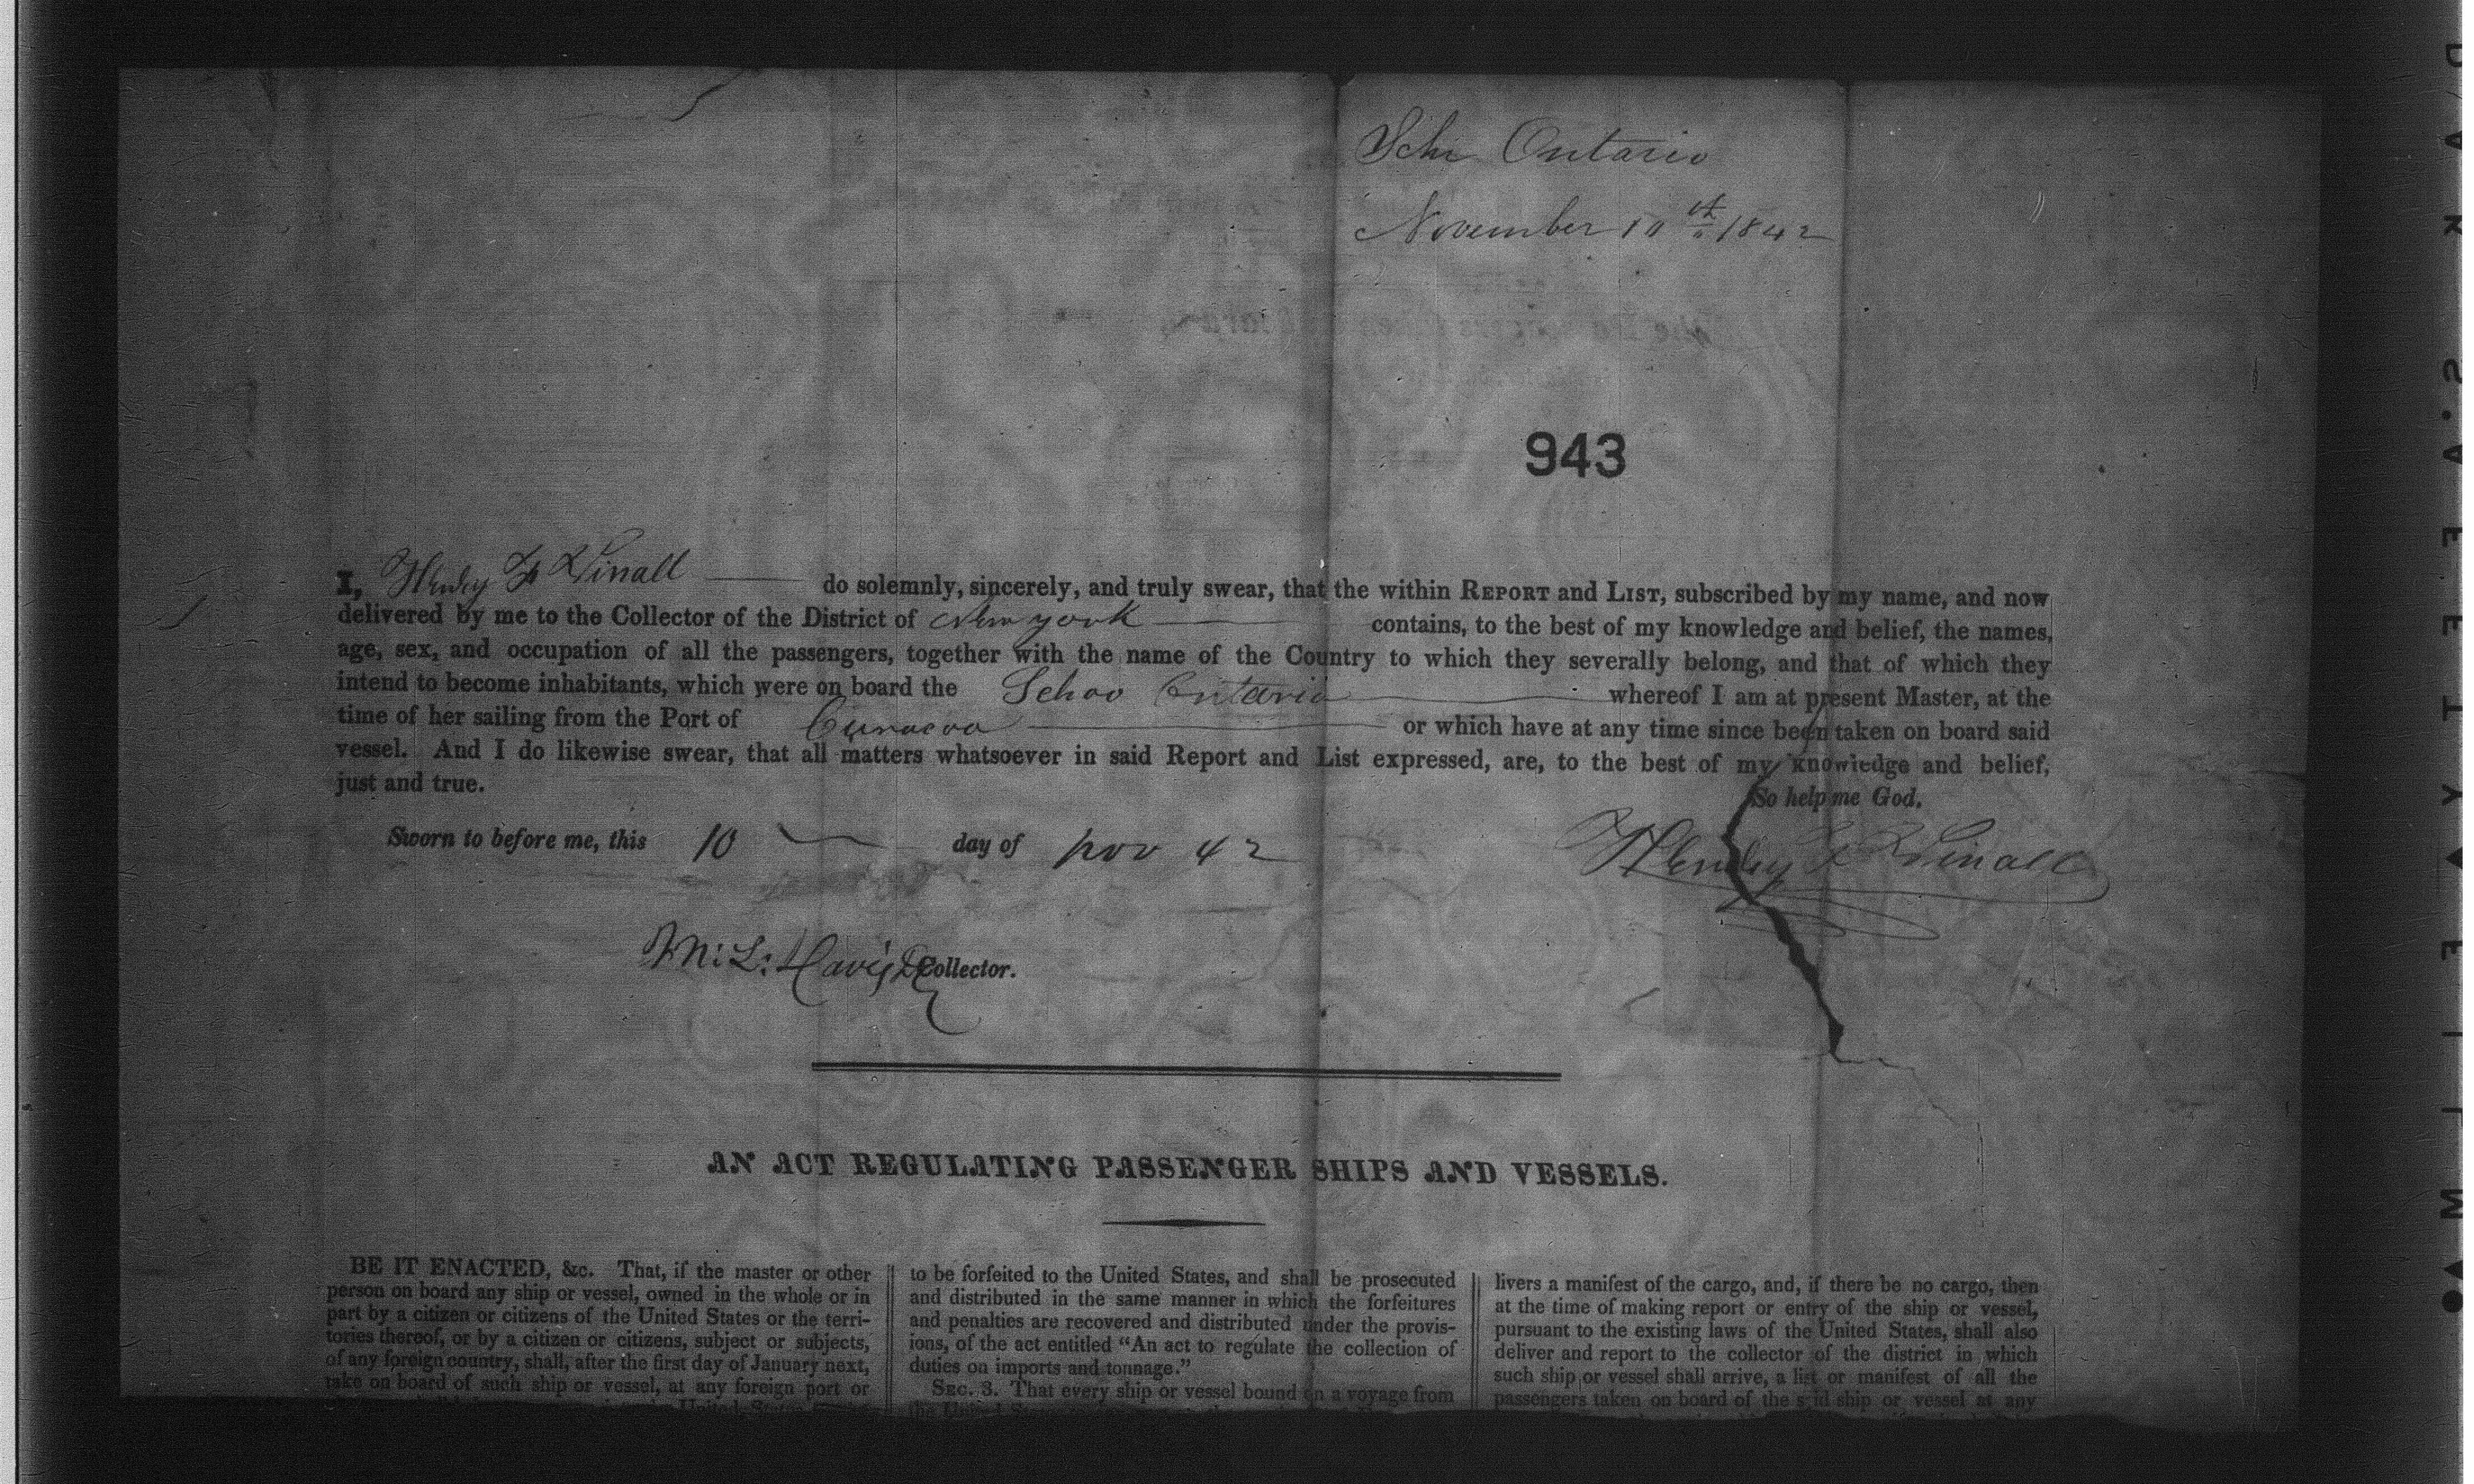 Schr Ontario
November 10th 1842
943
I, Henley F do solemnly, sincerely, and truly swear, that the within REPORT and LIST, subscribed by my name, and now
delivered by me to the Collector of the District of New york contains, to the best of my knowledge and belief, the names,
age, sex, and occupation of all the passengers, together with the name of the Country to which they severally belong, and that of which they
intend to become inhabitants, which were on board the Schoo Ontario whereof I am at present Master, at the
time of her sailing from the Port of Curacoa or which have at any time since been taken on board said
vessel. And I do likewise swear, that all matters whatsoever in said Report and List expressed, are, to the best of my knowledge and belief,
just and true.
So help me God.
Sworn to before me, this 10 day of nov 42
Henley F
M. L. Davis Collector.
AN ACT REGULATING PASSENGER SHIPS AND VESSELS.
BE IT ENACTED, &c. That, if the master or other
person on board any ship or vessel, owned in the whole or in
part by a citizen or citizens of the United States or the terri-
tories thereof, or by a citizen or citizens, subject or subjects,
of any foreign country, shall, after the first day of January next,
take on board of such ship or vessel, at any foreign port or
United States
to be forfeited to the United States, and shall be prosecuted
and distributed in the same manner in which the forfeitures
and penalties are recovered and distributed under the provis-
ions, of the act entitled "An act to regulate the collection of
duties on imports and tonnage."
SEC. 3. That every ship or vessel bound on a voyage from
the United
livers a manifest of the cargo, and, if there be no cargo, then
at the time of making report or entry of the ship or vessel,
pursuant to the existing laws of the United States, shall also
deliver and report to the collector of the district in which
such ship or vessel shall arrive, a list or manifest of all the
passengers taken on board of the said ship or vessel at any